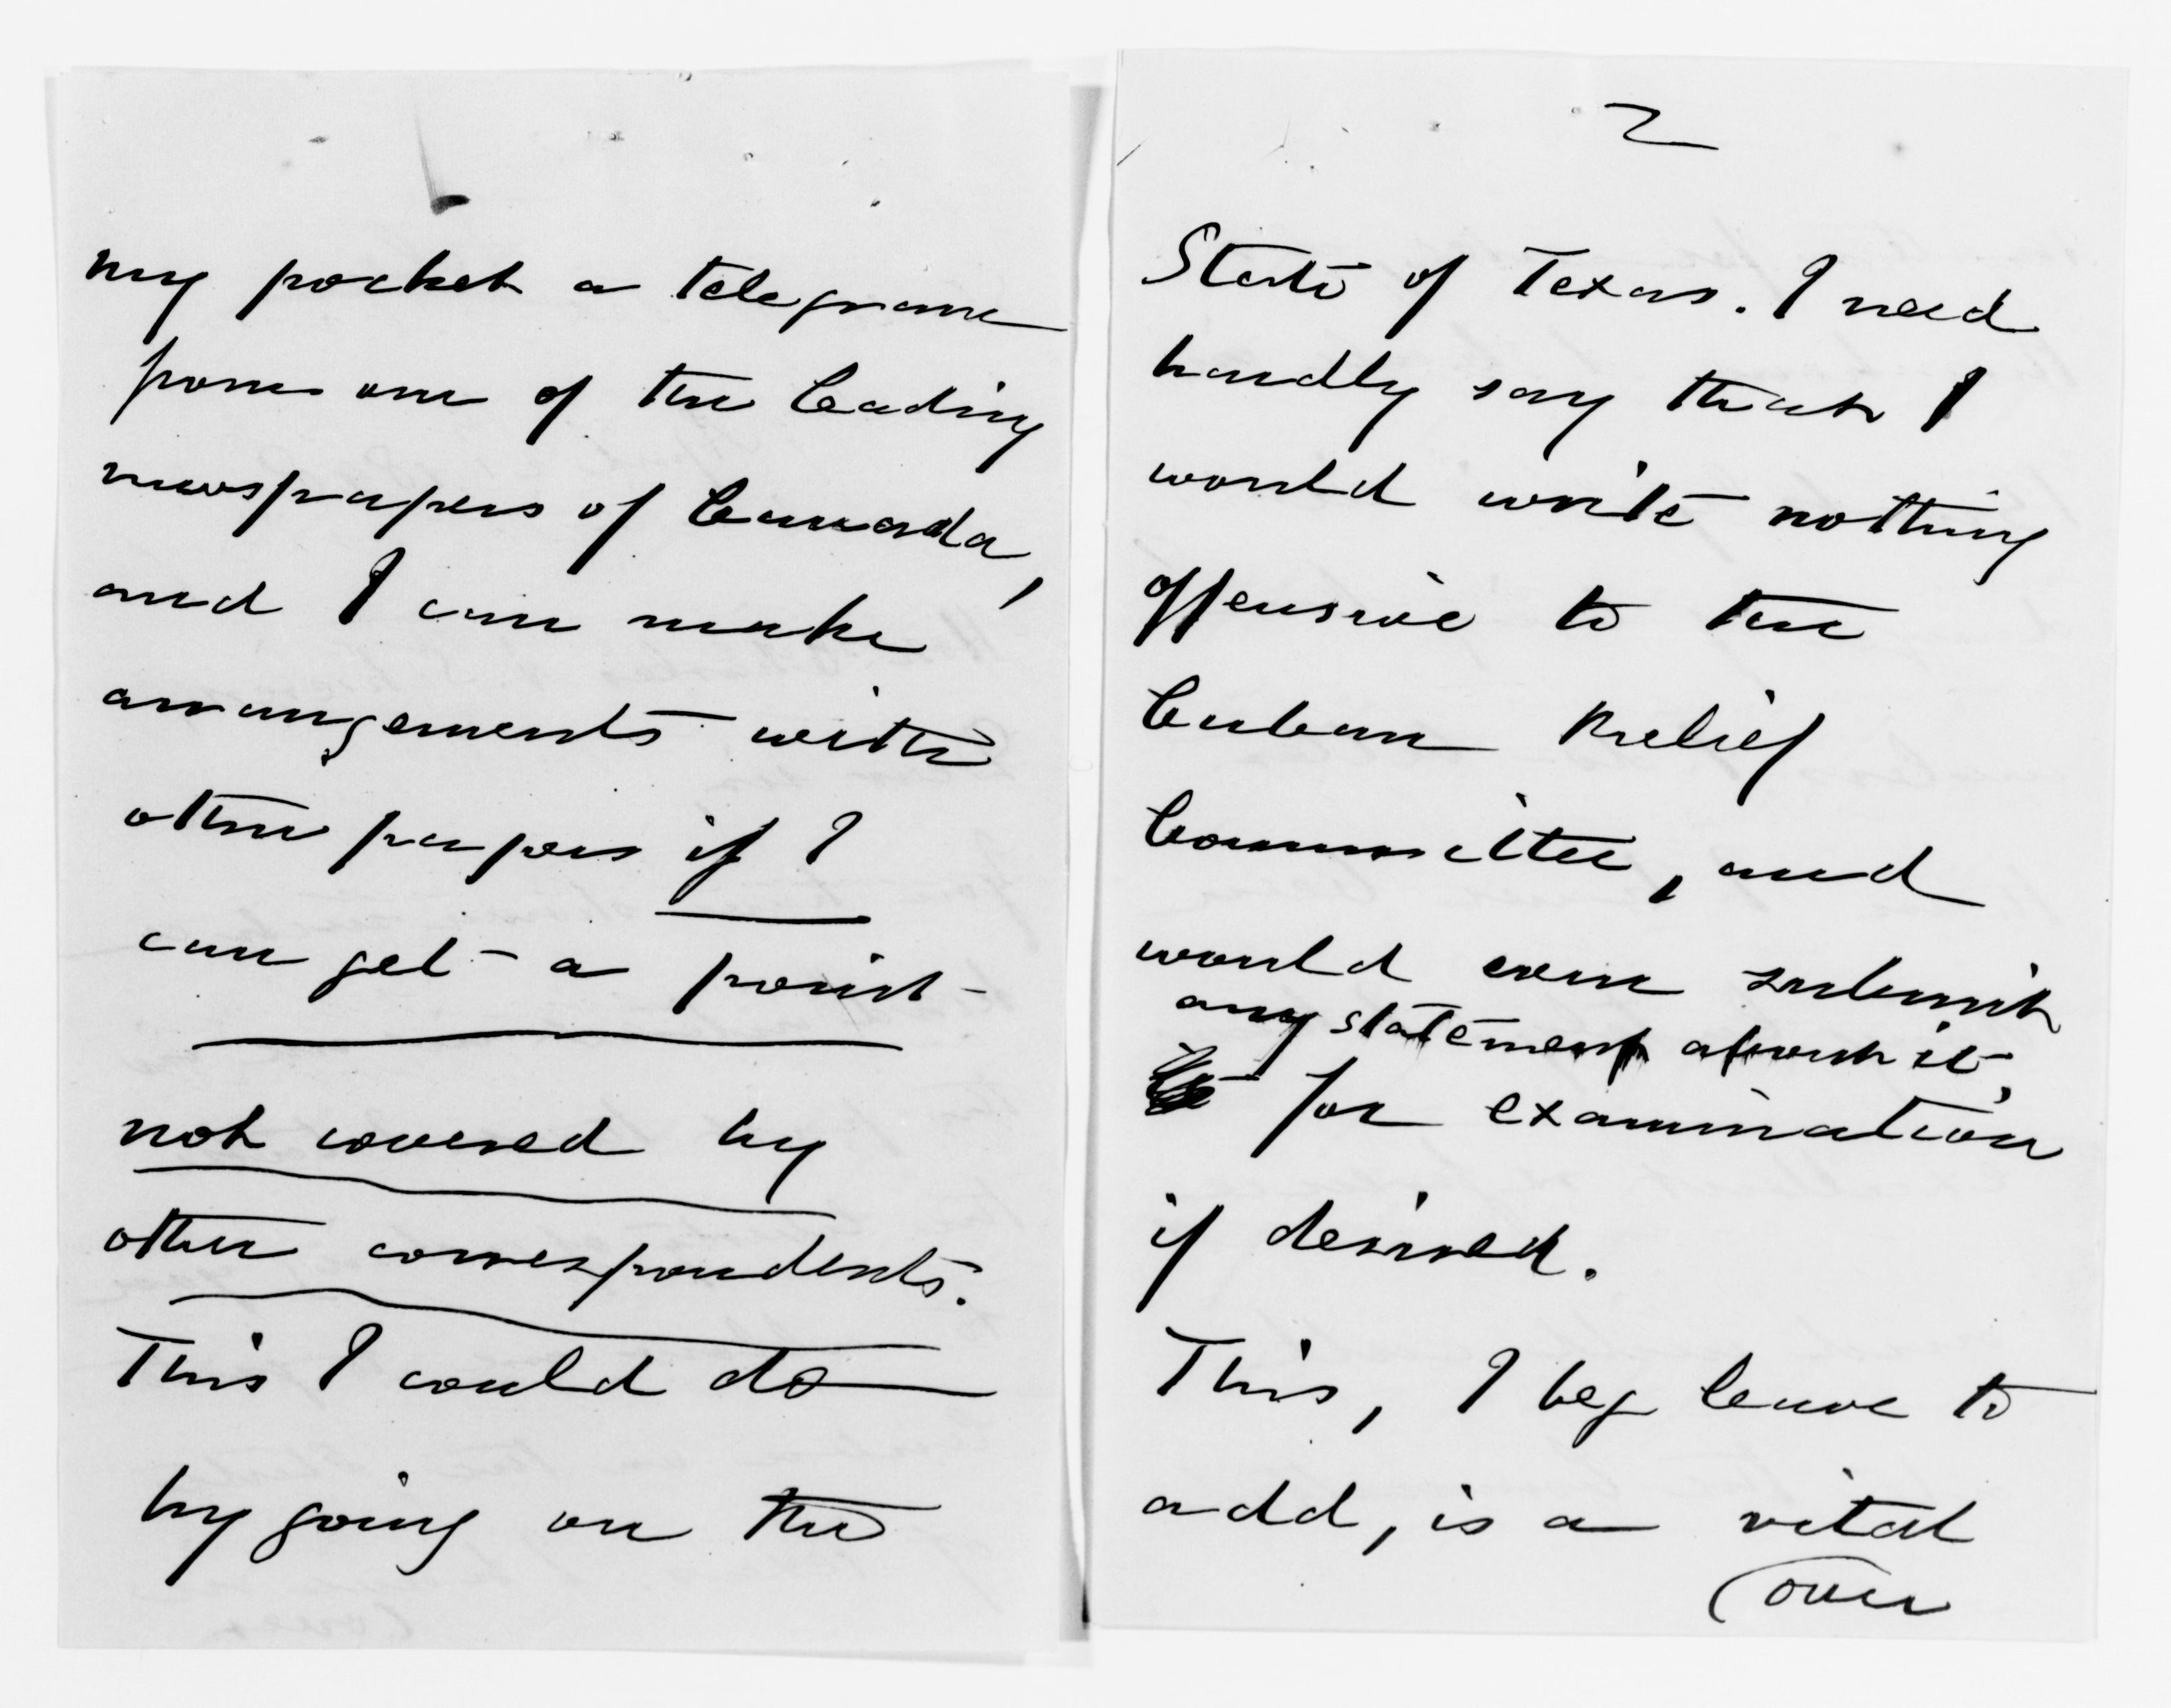 my pocket a telegram
from one of the leading
newspapers of Canada,
and I can make
arrangements with
other papers if I
can get a point
not covered by
other correspondents.
This I could do
by going on the
2
State of Texas. I need
hardly say that I
would write nothing
offensive to the
Cuban Relief
Committee, and
would even submit
any statement about it,
for examination
if desired.
This, I beg leave to
add, is a vital
(over